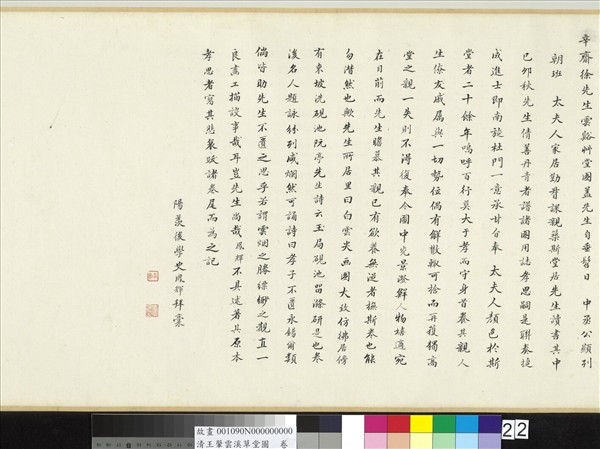 辛齋徐先生雲谿艸堂圖蓋先生自垂髫日 中丞公顯列
朝班 太夫人家居勤晉課親築斯堂居先生讀書其中
己卯秋先生倩善丹青者譜諸圖用誌孝思嗣是聯奏捷
成進士即南旋杜門一意承甘台奉 太夫人顏色於斯
堂者二十餘年嗚呼百行莫大于孝而守身首養其親人
生僚友戚屬與一切勢位偶有觧散輙可捨而再獲獨高
堂之觀一失則不得復奉今圖中光景澄鮮人物靖適宛
在目前而先生瞻慕其親已有欲養無逮者撫斯卷也能
勿潸然也歟先生所居里曰白雲尖畫圖大致仿彿居傍
有東坡洗硯池阮亭先生詩云玉局硯池留滌研是也卷
後名人題詠紛列咸爛然可誦詩曰孝子不匱永錫爾類
倘皆助先生不匱之思乎若謂雲烟之勝縹緲之觀直一
良畫工描設事哉耳豈先生尚哉鳳輝不具述著其原本
孝思者寫其悲褧跋諸卷尾而為之記
陽羨後學史鳳輝拜稾
故畫 001090N000000000
清王肇雲溪草堂圖 卷
22